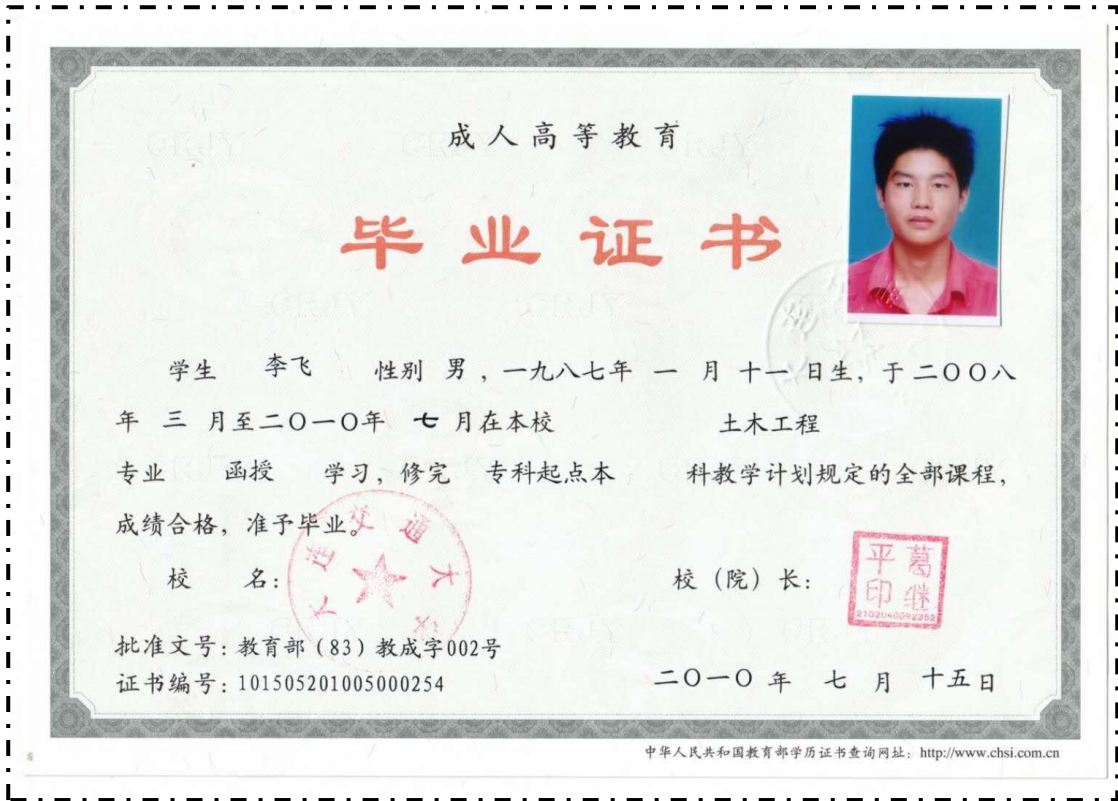 成人高等教育
毕业证书
学生 李飞 性别 男，一九八七年 一 月 十一 日生，于二〇〇八
年 三 月至二〇一〇年 七 月在本校 土木工程
专业 函授 学习，修完 专科起点本 科教学计划规定的全部课程，
成绩合格，准予毕业。
大连交通大学
校 名： 校（院）长：
葛继平印
2102040092352
批准文号：教育部（83）教成字002号
证书编号：101505201005000254
二〇一〇 年 七 月 十五 日
中华人民共和国教育部学历证书查询网址：http://www.chsi.com.cn